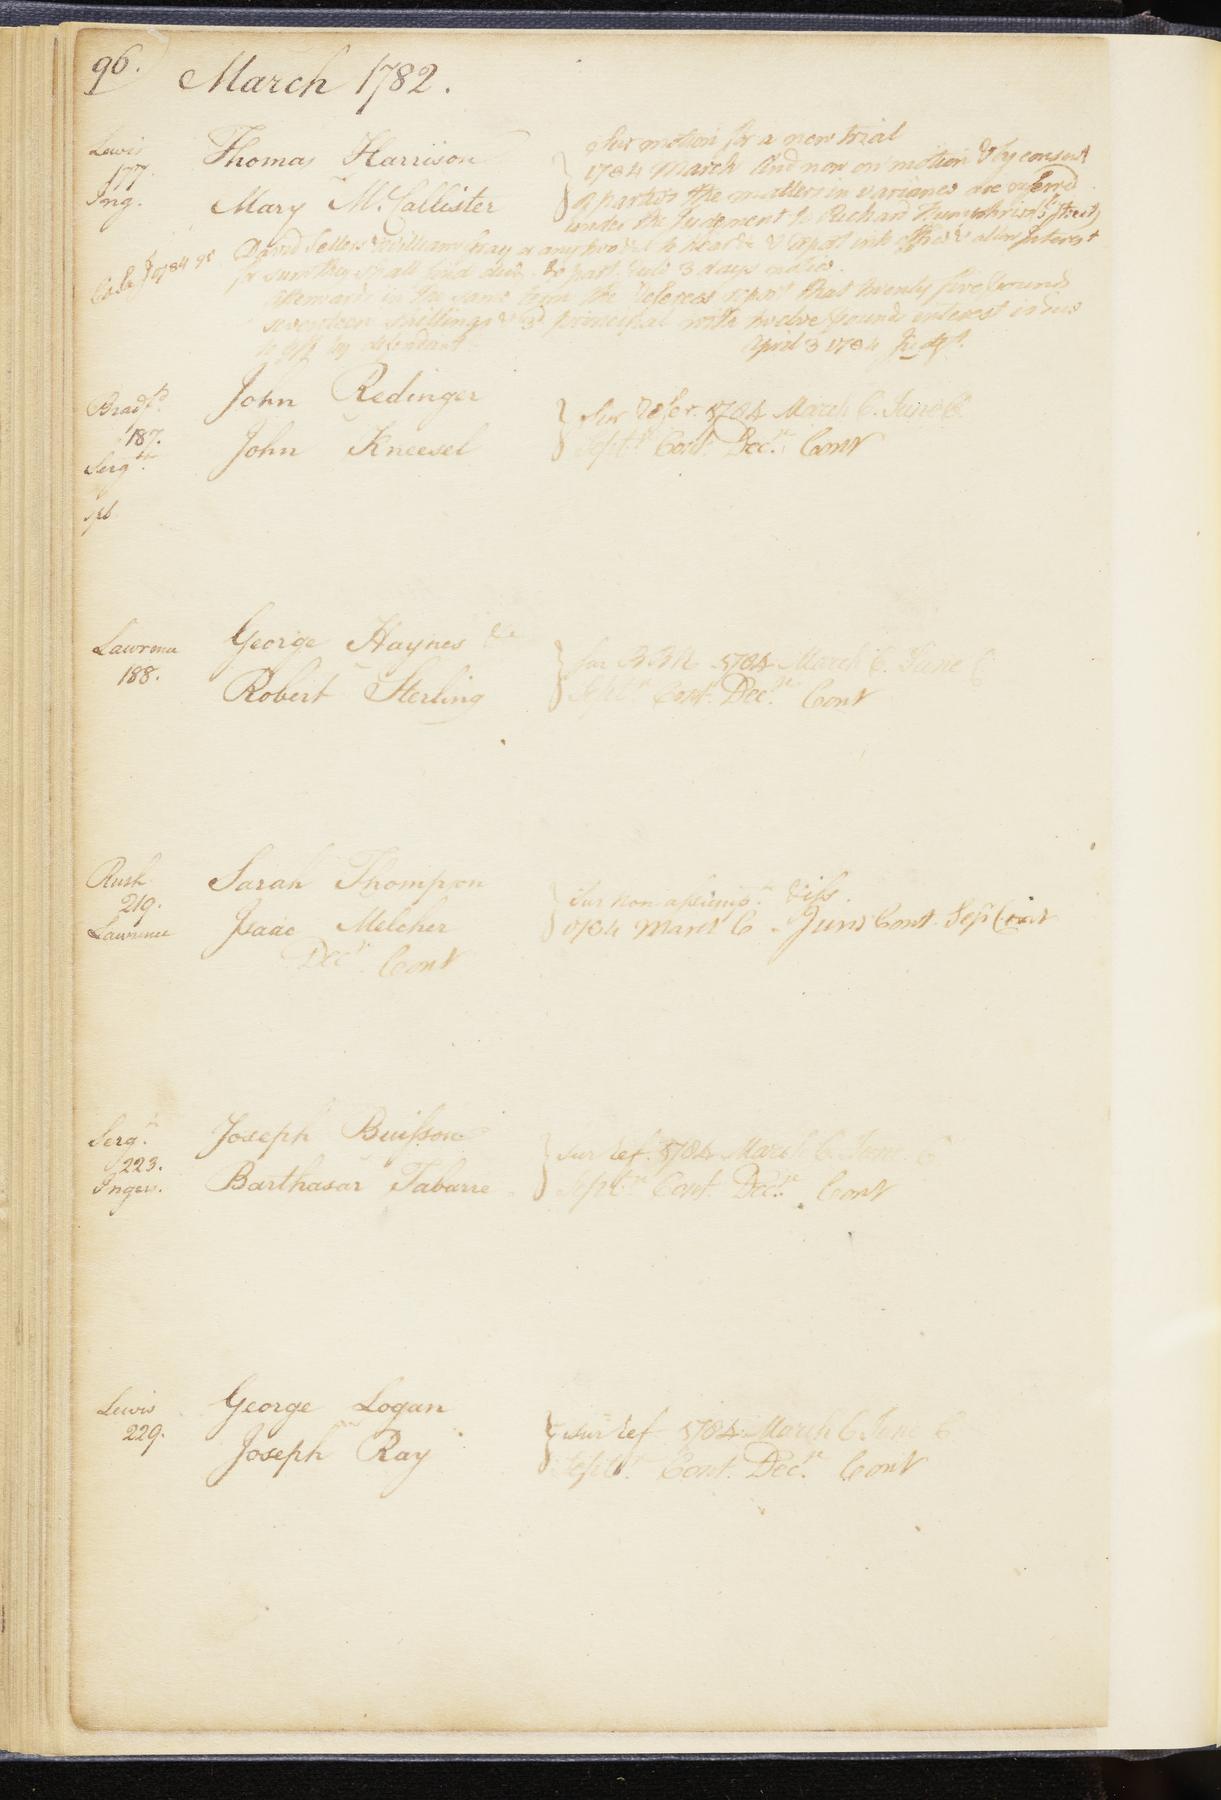 96. March 1782.
Lewis
177.
Ing.
Thomas Harrison
Mary McCallister
Sur motion for a new trial
1784 March And now on motion & by consent
of parties the matters in variance are referred
under the Judgment to Richard Humphris
David Sellers & William Gray or any two of to hear & report into office & allow Interest
for sum they shall find due. Ex parte rule 3 days notice.
Afterwards in the same term the referees report that twenty five pounds
seventeen shillings & 3d principal with twelve pounds interest is due
to plff by defendant
April 3 1784
Bradfd.
187.
Sergt.
John Redinger
John Kneesel
Sur refer. 1784 March C. June C
Septr Cont. Decr. Cont
Lawrence
188.
George Haynes &c
Robert Sterling
Sur 1784 March C. June C
Septr Cont. Decr. Cont
Rush
219.
Lawrence
Sarah Thompson
Isaac Melcher
Sur non assumpt.
1784 March C. June Cont. Sep Cont
Decr Cont
Sergt.
223.
Inger.
Joseph Buisson
Barthasar Tabarre
Sur ref. 1784 March C. June C
Septr Cont. Decr. Cont
Lewis
229.
George Logan
Joseph Ray
Sur ref 1784 March C June C
Septr. Cont. Decr. Cont